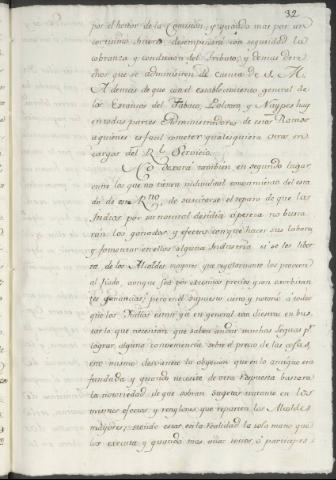 32
por el honor de la Comision, y quando mas por un
cortissimo interes desempeñará con seguridad la
cobranza y conducion del Tributo, y demas dere
chos que se administren de cuenta de S. M.
Ademas de que con el establecimiento general de
los Estancos del Tabaco, Polvora, y Naypes hay
en todas partes Administradores de estos Ramos
a quienes es facil cometer qualesquiera otros en
cargos del Rl. Servicio.
No dexará tambien en segundo lugar
entre los que no tienen individual conocimiento del esta
do de este Rno. de suscitarse el reparo de que los
Indios por su natural desidia apenas no busca
ran los ganados, y efectos con que hacer sus labores
y fomentar entre ellos alguna Industria si se les liber
ta de los Alcaldes mayores que regularmente los proveen
al fiado, aunque sea por excesivos precios y con exorbitan
tes ganancias; pero en el supuesto cierto y notorio a todos
que los Indios estan ya en general tan diestros en bus
car lo que necesitan que saben andar muchas leguas pa.
lograr alguna conveniencia sobre el precio de las cosas,
esto mismo desvanece la objecion que en lo antiguo era
fundada y quando necesite de otra respuesta bastará
la notoriedad de que sobran sugetos que traten en los
mismos efectos y renglones que reparten los Alcaldes
mayores; siendo estos en la realidad la sola mano que
los executa y quando mas, unos socios, o participes